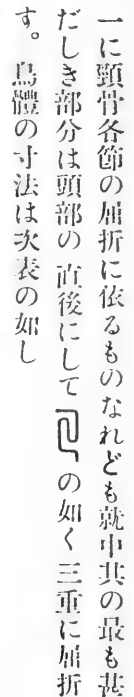 一に頸骨各節の屈折に依るものなれども就中其の最も甚
だしき部分は頭部の直後にしての如く三重に屈折
す。鳥體の寸法は次表の如し